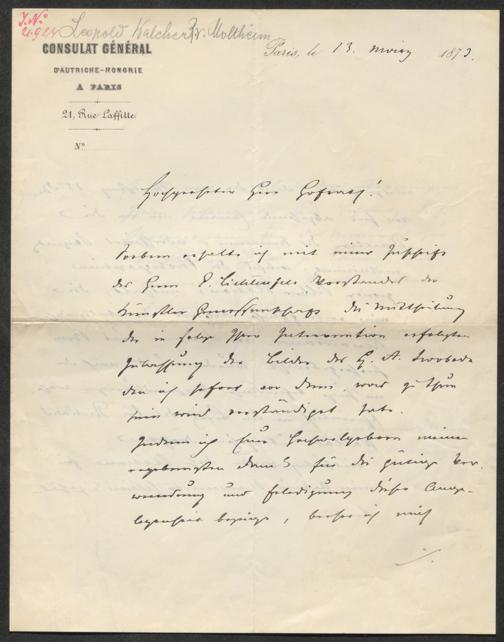 J.N.
Leopold Walcher Rr. v. Moltheim
CONSULAT GÉNÉRAL
D'AUTRICHE-HONGRIE
A PARIS
21, Rue Laffitte.
Nº
Paris, le 13. 1873.
Hochgeehrter Herr Hofrath!
Soeben erhalte ich mit einer Zuschrift
des Herrn E. Lichtenfels Vorstandes der
Künstler Genossenschaft die Mittheilung
der in Folge Ihrer Intervention erfolgten
Zulassung der Bilder des H. A. Swoboda
den ich sofort von dem
sein wird verständiget habe.
Indem ich Euer Hochwolgeboren meinen
ergebensten Dank für die gütige Ver-
wendung und Erledigung dieser Ange-
legenheit bezeige, beehre ich mich